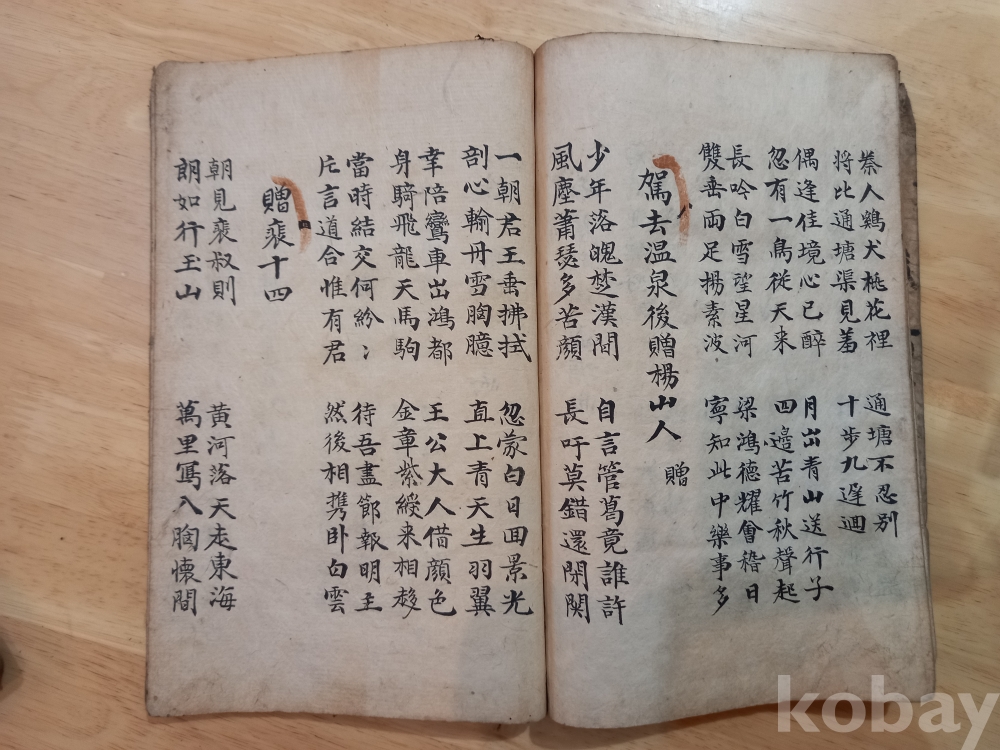 秦人鷄犬桃花裡
將比通塘渠見羞
通塘不忍別
十步九遲迴
偶逢佳境心已醉
忽有一鳥從天来
月出青山送行子
四邉苦竹秋聲起
長吟白雪望星河
雙垂両足揚素波
梁鴻德耀會稽日
寧知此中樂事多
駕去温泉後贈楊山人
贈
少年落魄楚漢間
風塵萧瑟多苦顔
自言管葛竟誰許
長吁莫錯還閉関
一朝君王垂拂拭
剖心輸丹雪胸臆
忽蒙白日回景光
直上青天生羽翼
幸陪鸞車出鴻都
身騎飛龍天馬駒
王公大人借顔色
金章紫綬来相趍
當時結交何紛〻
片言道合惟有君
待吾盡節報明主
然後相携卧白雲
贈裴十四
朝見裴叔則
朗如行玉山
黄河落天走東海
萬里寫入胸懷間
kobay